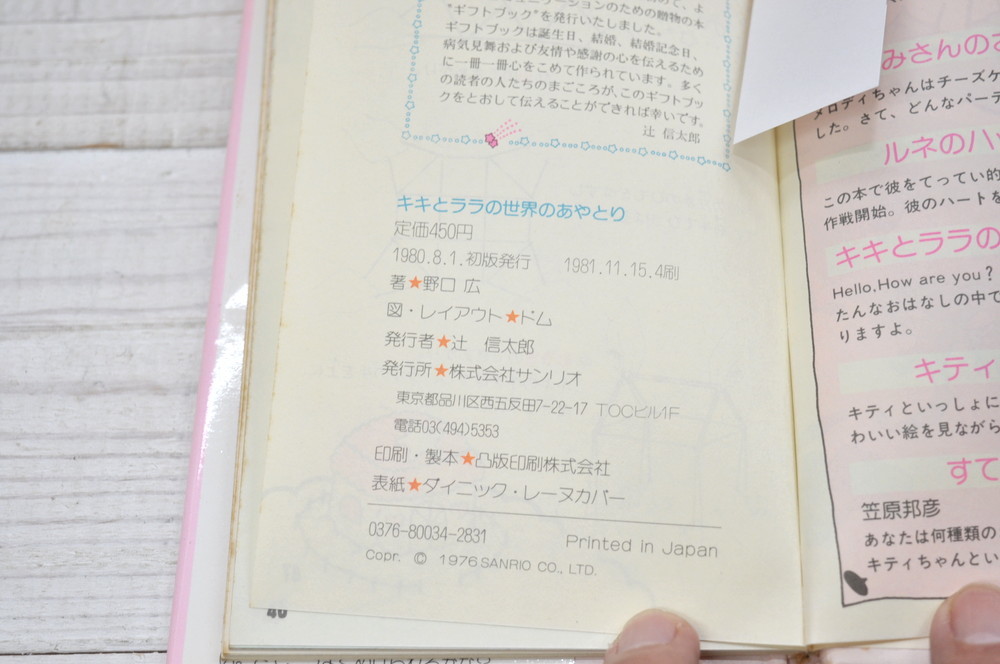 ュニケーションのための贈物の本
"ギフトブック"を発行いたしました。
ギフトブックは誕生日、結婚、結婚記念日、
病気見舞および友情や感謝の心を伝えるため
に一冊一冊心をこめて作られています。多く
の読者の人たちのまごころが、このギフトブッ
クをとおして伝えることができれば幸いです。
辻 信太郎
キキとララの世界のあやとり
定価450円
1980.8.1.初版発行 1981.11.15.4刷
著★野口 広
図・レイアウト★ドム
発行者★辻 信太郎
発行所★株式会社サンリオ
東京都品川区西五反田7-22-17 TOCビル1F
電話03(494)5353
印刷・製本★凸版印刷株式会社
表紙★ダイニック・レーヌカバー
0376-80034-2831 Printed in Japan
Copr. © 1976 SANRIO CO., LTD.
40
みさんの
メロディちゃんはチーズケ
した。さて、どんなパーテ
ルネのハ
この本で彼をてってい的
作戦開始。彼のハートを
キキとララの
Hello,How are you?
たんなおはなしの中で
りますよ。
キティ
キティといっしょに
わいい絵を見ながら
すて
笠原邦彦
あなたは何種類の
キティちゃんとい